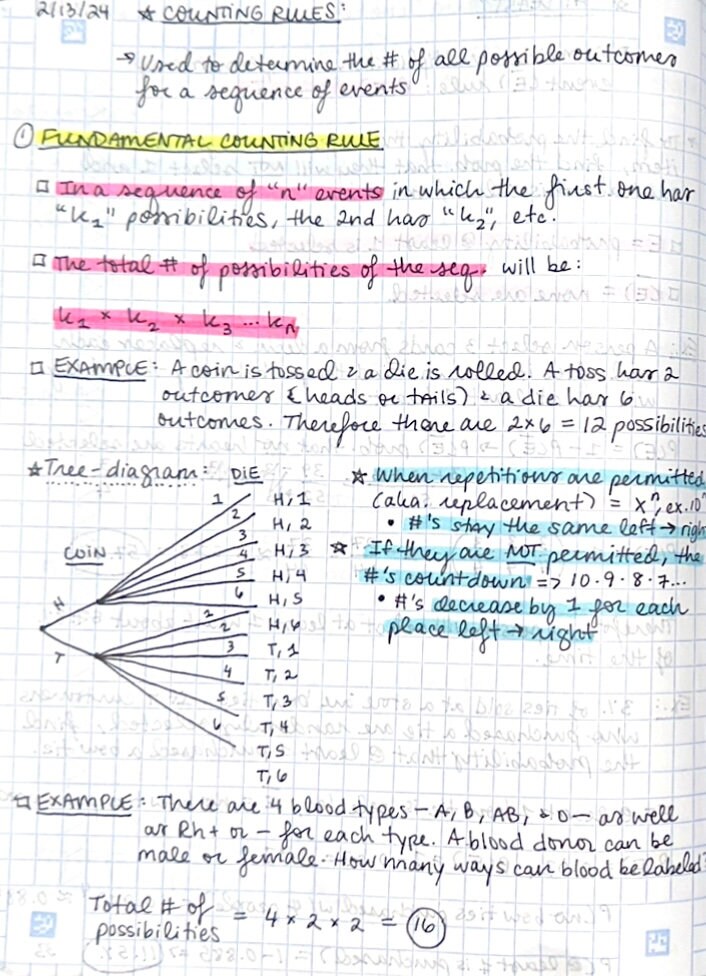 2/13/24 ☆ COUNTING RULES:
→ Used to determine the # of all possible outcomes
for a sequence of events
① FUNDAMENTAL COUNTING RULE
□ In a sequence of "n" events in which the first one has
"k₁" possibilities, the 2nd has "k₂", etc.
□ The total # of possibilities of the seq. will be:
k₁ × k₂ × k₃ ... kₙ
□ EXAMPLE: A coin is tossed & a die is rolled. A toss has 2
outcomes (heads or tails) & a die has 6
outcomes. Therefore there are 2×6 = 12 possibilities
☆ Tree-diagram:
COIN
DIE
H
T
1
2
3
4
5
6
1
2
3
4
5
6
H, 1
H, 2
H, 3
H, 4
H, 5
H, 6
T, 1
T, 2
T, 3
T, 4
T, 5
T, 6
☆ When repetitions are permitted
(aka. replacement) = xⁿ, ex. 10ⁿ
• #'s stay the same left → right
☆ If they are NOT permitted, the
#'s countdown => 10·9·8·7...
• #'s decrease by 1 for each
place left → right
□ EXAMPLE: There are 4 blood types – A, B, AB, & O – as well
as Rh + or – for each type. A blood donor can be
male or female. How many ways can blood be labeled?
Total # of
possibilities = 4 × 2 × 2 = 16